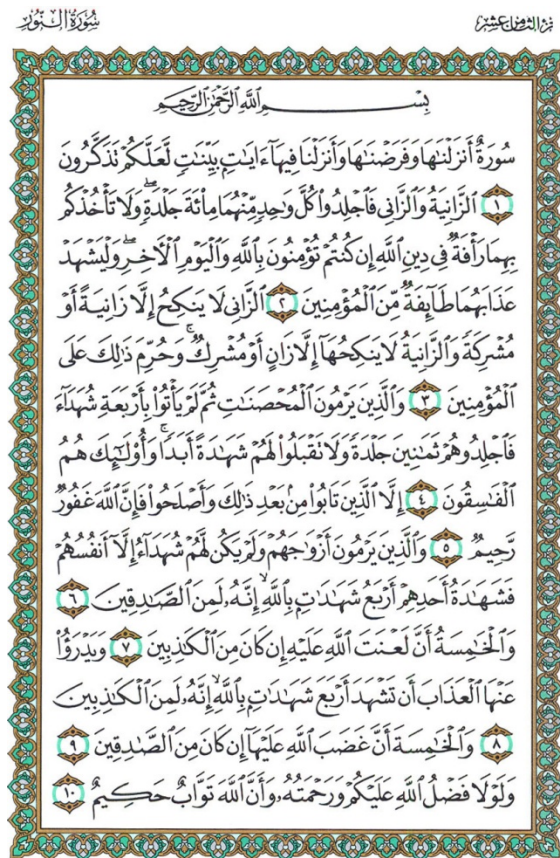 سُورَةُ النُّورِ
الجزء الثامن عشر
بِسْمِ اللَّهِ الرَّحْمَٰنِ الرَّحِيمِ
سُورَةٌ أَنزَلْنَٰهَا وَفَرَضْنَٰهَا وَأَنزَلْنَا فِيهَآ ءَايَٰتٍۭ بَيِّنَٰتٍ لَّعَلَّكُمْ تَذَكَّرُونَ
﴿١﴾ ٱلزَّانِيَةُ وَٱلزَّانِى فَٱجْلِدُوا۟ كُلَّ وَٰحِدٍ مِّنْهُمَا مِا۟ئَةَ جَلْدَةٍۖ وَلَا تَأْخُذْكُم
بِهِمَا رَأْفَةٌ فِى دِينِ ٱللَّهِ إِن كُنتُمْ تُؤْمِنُونَ بِٱللَّهِ وَٱلْيَوْمِ ٱلْأَخِرِۖ وَلْيَشْهَدْ
عَذَابَهُمَا طَآئِفَةٌ مِّنَ ٱلْمُؤْمِنِينَ ﴿٢﴾ ٱلزَّانِى لَا يَنكِحُ إِلَّا زَانِيَةً أَوْ
مُشْرِكَةً وَٱلزَّانِيَةُ لَا يَنكِحُهَآ إِلَّا زَانٍ أَوْ مُشْرِكٌۚ وَحُرِّمَ ذَٰلِكَ عَلَى
ٱلْمُؤْمِنِينَ ﴿٣﴾ وَٱلَّذِينَ يَرْمُونَ ٱلْمُحْصَنَٰتِ ثُمَّ لَمْ يَأْتُوا۟ بِأَرْبَعَةِ شُهَدَآءَ
فَٱجْلِدُوهُمْ ثَمَٰنِينَ جَلْدَةً وَلَا تَقْبَلُوا۟ لَهُمْ شَهَٰدَةً أَبَدًاۚ وَأُو۟لَٰٓئِكَ هُمُ
ٱلْفَٰسِقُونَ ﴿٤﴾ إِلَّا ٱلَّذِينَ تَابُوا۟ مِنۢ بَعْدِ ذَٰلِكَ وَأَصْلَحُوا۟ فَإِنَّ ٱللَّهَ غَفُورٌ
رَّحِيمٌ ﴿٥﴾ وَٱلَّذِينَ يَرْمُونَ أَزْوَٰجَهُمْ وَلَمْ يَكُن لَّهُمْ شُهَدَآءُ إِلَّآ أَنفُسُهُمْ
فَشَهَٰدَةُ أَحَدِهِمْ أَرْبَعُ شَهَٰدَٰتٍۭ بِٱللَّهِۙ إِنَّهُۥ لَمِنَ ٱلصَّٰدِقِينَ ﴿٦﴾
وَٱلْخَٰمِسَةُ أَنَّ لَعْنَتَ ٱللَّهِ عَلَيْهِ إِن كَانَ مِنَ ٱلْكَٰذِبِينَ ﴿٧﴾ وَيَدْرَؤُا۟
عَنْهَا ٱلْعَذَابَ أَن تَشْهَدَ أَرْبَعَ شَهَٰدَٰتٍۭ بِٱللَّهِۙ إِنَّهُۥ لَمِنَ ٱلْكَٰذِبِينَ
﴿٨﴾ وَٱلْخَٰمِسَةَ أَنَّ غَضَبَ ٱللَّهِ عَلَيْهَآ إِن كَانَ مِنَ ٱلصَّٰدِقِينَ ﴿٩﴾
وَلَوْلَا فَضْلُ ٱللَّهِ عَلَيْكُمْ وَرَحْمَتُهُۥ وَأَنَّ ٱللَّهَ تَوَّابٌ حَكِيمٌ ﴿١٠﴾